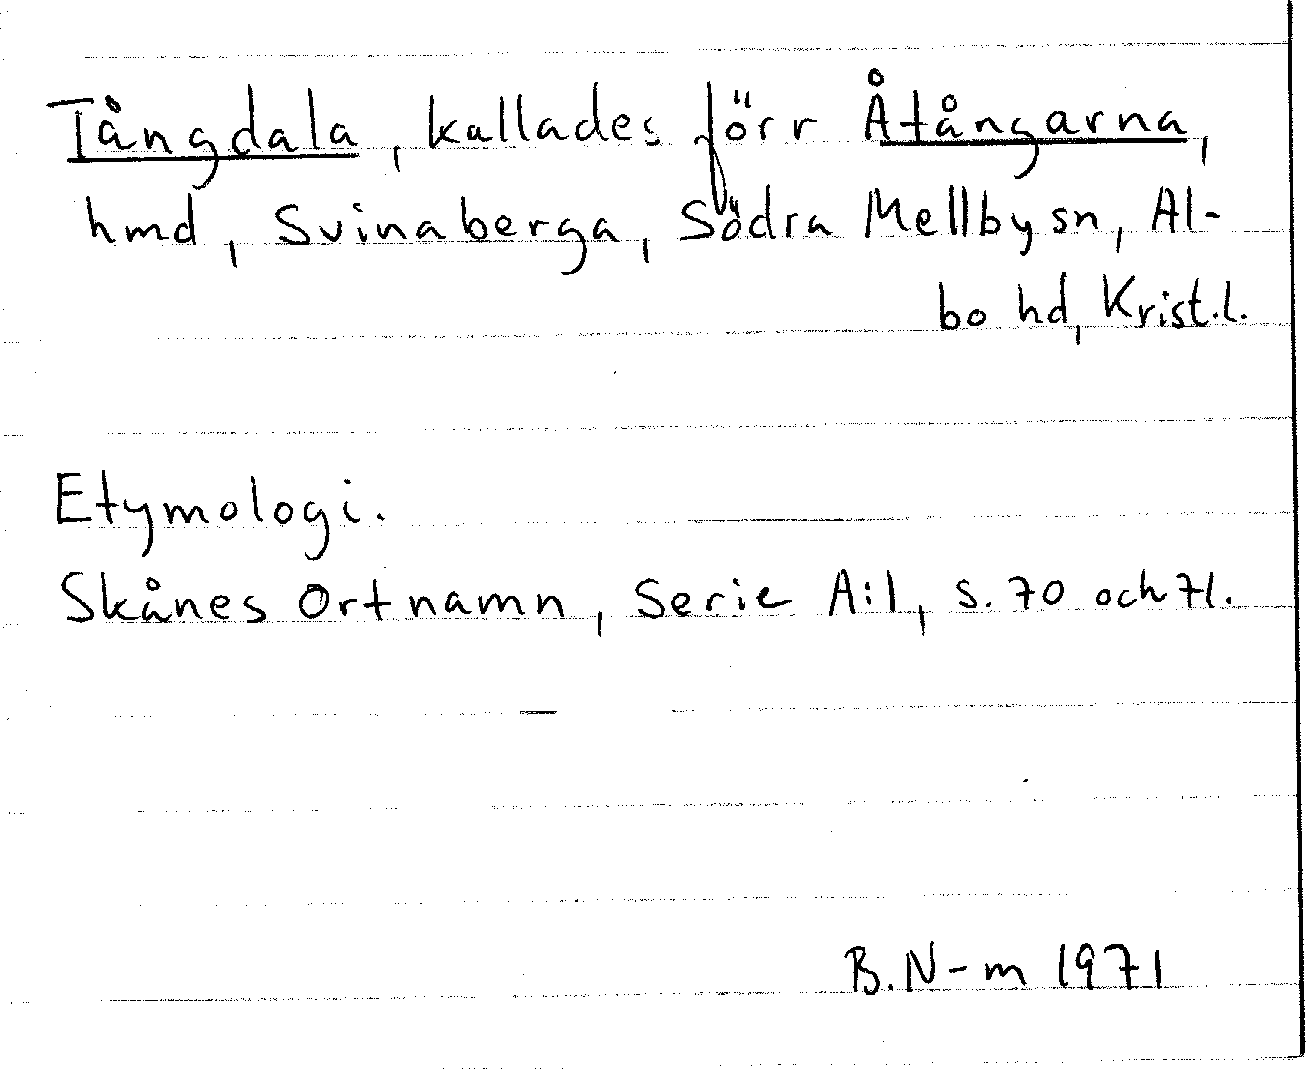 Tångdala, kallades förr Åtångarna,
hmd, Svinaberga, Södra Mellby sn, Al-
bo hd, Krist.l.
Etymologi.
Skånes Ortnamn, Serie A:1, s. 70 och 71.
B.N-m 1971